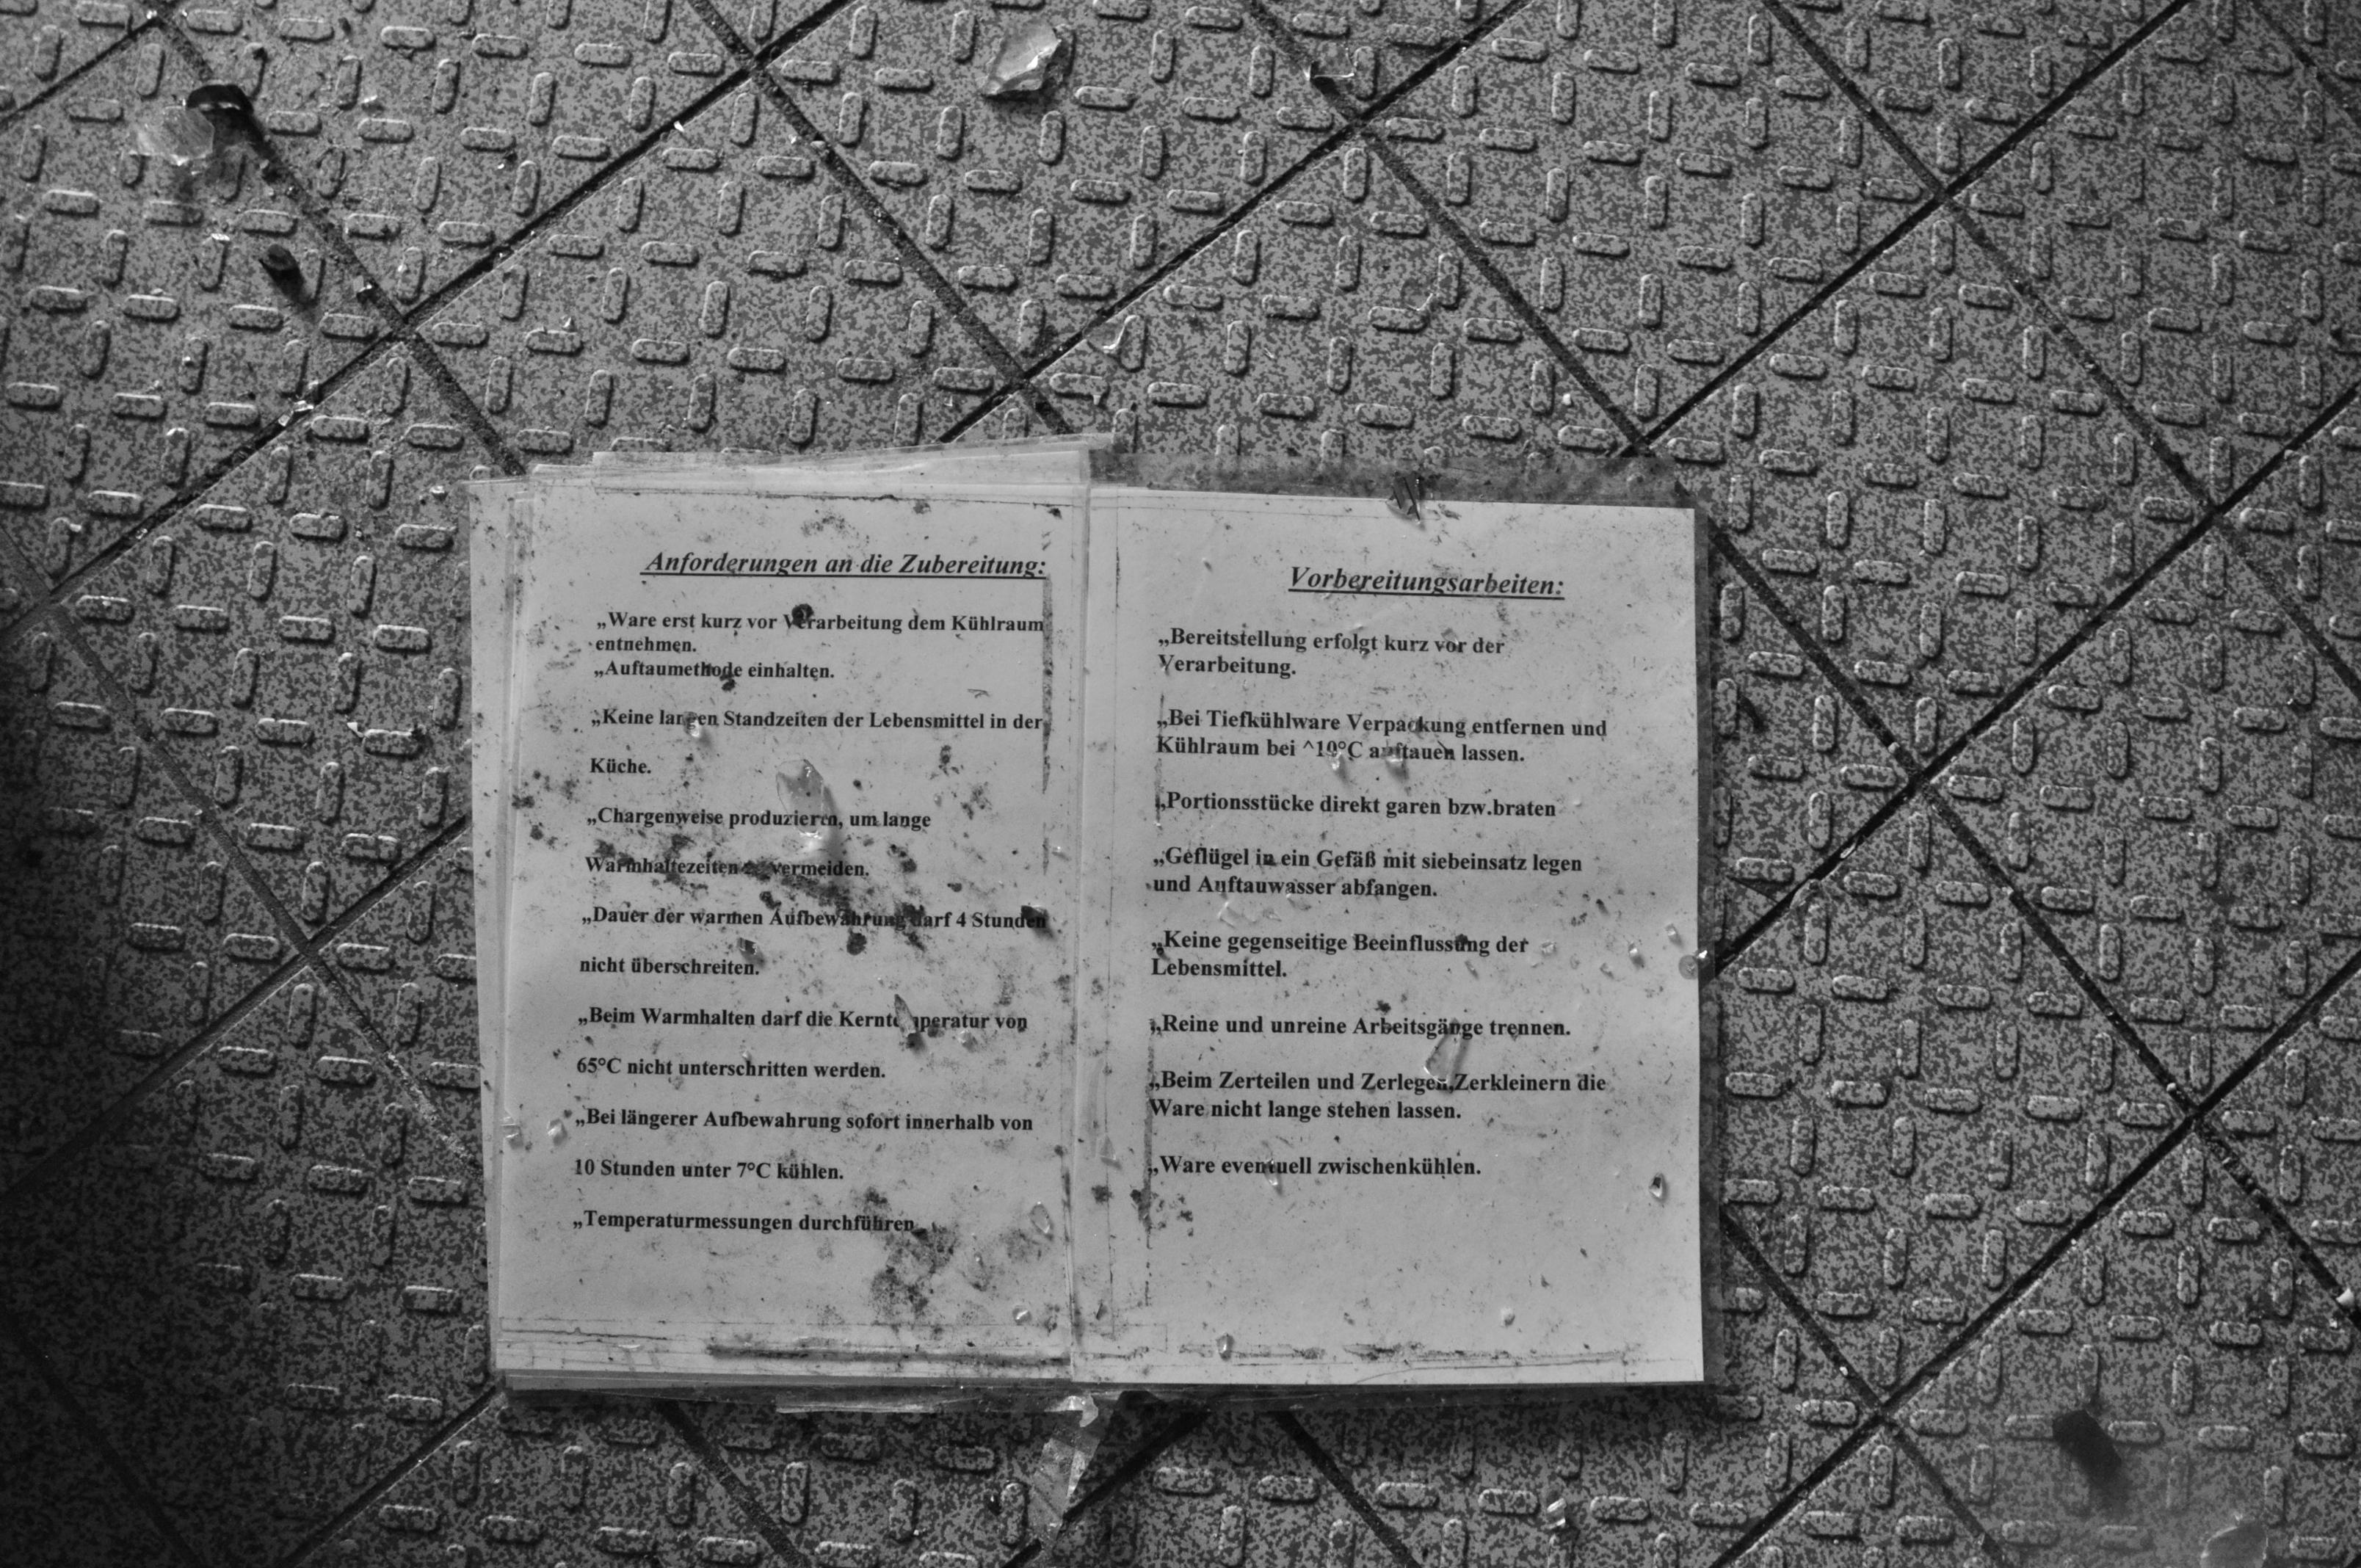 Anforderungen an die Zubereitung:
„Ware erst kurz vor Verarbeitung dem Kühlraum
entnehmen.
„Auftaumethode einhalten.
„Keine langen Standzeiten der Lebensmittel in der
Küche.
„Chargenweise produzieren, um lange
Warmhaltezeiten zu vermeiden.
„Dauer der warmen Aufbewahrung darf 4 Stunden
nicht überschreiten.
„Beim Warmhalten darf die Kerntemperatur von
65°C nicht unterschritten werden.
„Bei längerer Aufbewahrung sofort innerhalb von
10 Stunden unter 7°C kühlen.
„Temperaturmessungen durchführen
Vorbereitungsarbeiten:
„Bereitstellung erfolgt kurz vor der
Verarbeitung.
„Bei Tiefkühlware Verpackung entfernen und
Kühlraum bei ^10°C auftauen lassen.
„Portionsstücke direkt garen bzw.braten
„Geflügel in ein Gefäß mit siebeinsatz legen
und Auftauwasser abfangen.
„Keine gegenseitige Beeinflussung der
Lebensmittel.
„Reine und unreine Arbeitsgänge trennen.
„Beim Zerteilen und Zerlegen,Zerkleinern die
Ware nicht lange stehen lassen.
„Ware eventuell zwischenkühlen.